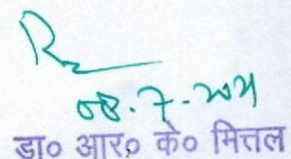 08.7.2024
डा० आर० के० मित्तल